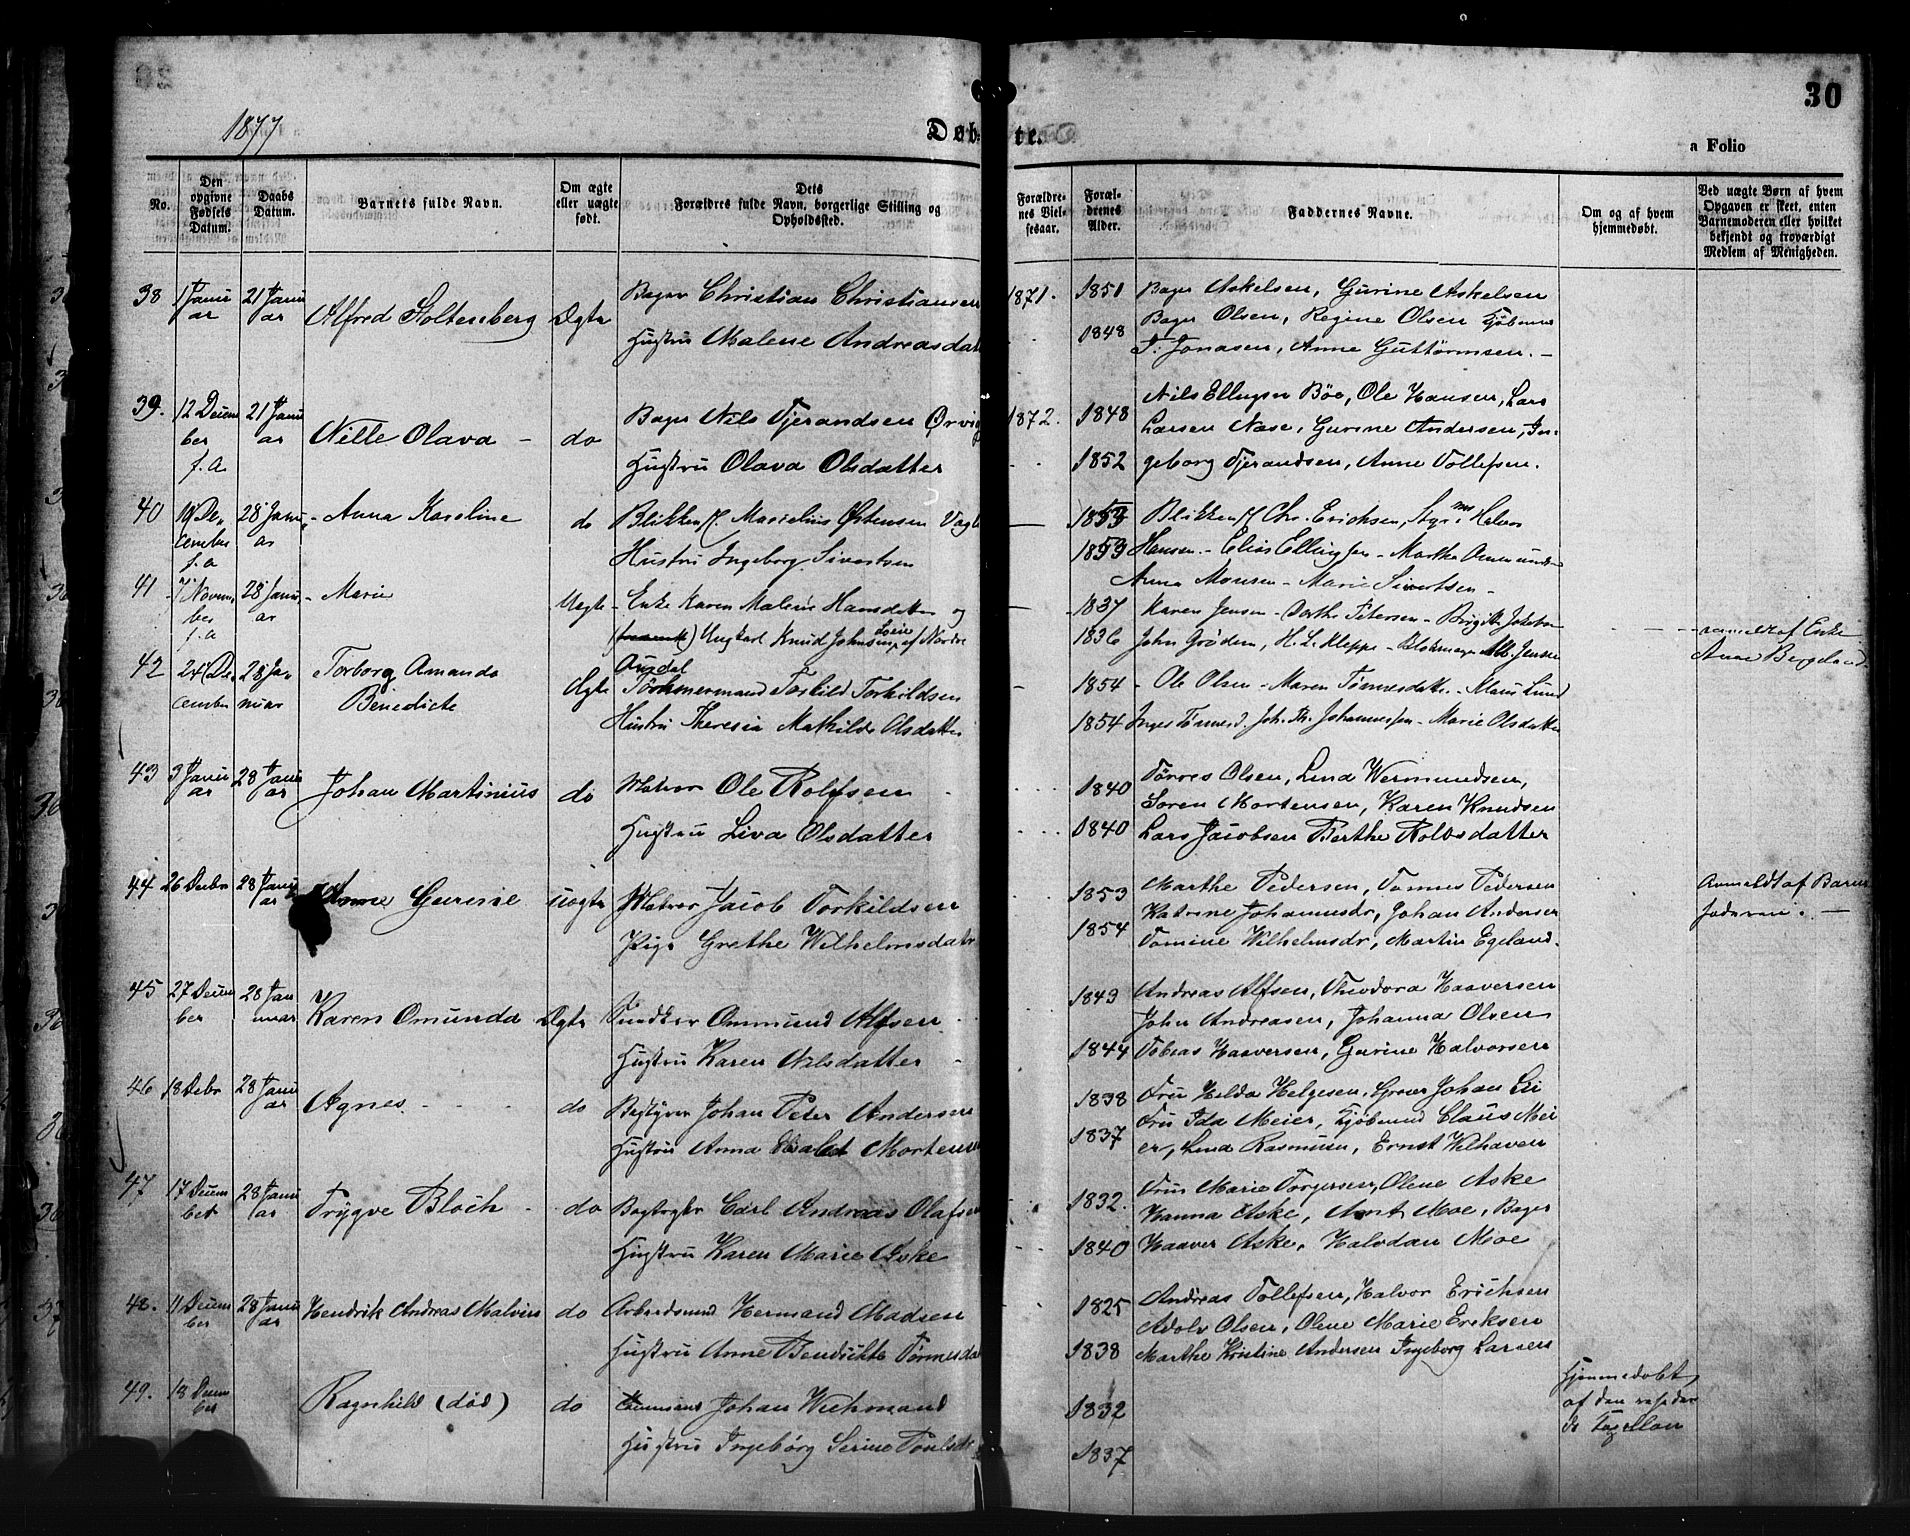 30
1877
Døbte.
a Folio
No.
Den opgivne Fødsels Datum.
Daabs Datum.
Barnets fulde Navn.
Om ægte eller uægte født.
Dets Forældres fulde Navn, borgerlige Stilling og Opholdssted.
Forældrenes Vielsesaar.
Forældrenes Alder.
Faddernes Navne.
Om og af hvem hjemmedøbt.
Ved uægte Børn af hvem Opgaven er skeet, enten Barnemoderen eller hvilket bekjendt og troværdigt Medlem af Menigheden.
38 1 Januar 21 Januar Alfred Soltenberg Ægte Bager Christian Christiansen 1871. 1851 Bager Askelsen, Gurine Askelsen
Bager Olsen, Regine Olsen
Hustru Malene Andreasdat 1848 T. Jonasen, Anne Guttormsen.
39. 12 December f.A 21 Januar Nille Olava do Bager Nils Tjerandsen Ørvig 1872. 1848 Nils Ellingsen Böe, Ole Hansen, Lars
Larsen Nase, Gurine Andersen, In-
Hustru Olava Olsdatter 1852 geborg Tjerandsen, Anne Tollefsen.
40 December f.a 28 Januar Anna Karoline do Marselius Østensen 1853 Chr. Erichsen, Styrm. Helvor
Hustru Ingeborg Sivertsen 1853 Hansen - Elias Ellingsen - Martha
Anna Monsen - Marie Sivertsen -
41 7 November f.a 28 Januar Marie Uægte Enke Karen Malene Hansdatter og 1837 Karen Jensen - Dorthe Petersen -
Ungkarl Knud Johnsen af Nordre 1836 John Grøden, H. L. Kleppe - Jensen
Audal
Enke
Anne Bergeland
42 24 December 28 Januar Torborg Amanda Ægte Tømmermand Torkild Torkildsen 1854 Ole Olsen - Maren Tønnesdatter - Klaus Lund
Benedicte Hustru Theresia Mathilde Olsdatter 1854 Johannessen - Marie Olsdatter
43 3 Januar 28 Januar Johan Martinius do Matros Ole Rolfsen 1840 Tørres Olsen, Lena Wermundsen,
Søren Mortensen, Karen Knudsen
Hustru Liva Olsdatter 1840 Lars Jacobsen Berthe Rolvsdatter
44 26 Decbr 28 Januar Anne Gurine uægte Matros Jacob Torkildsen 1853 Marthe Pedersen, Tønnes Pedersen
Katrine Johannesdr, Johan Andersen
Pige Grethe Wilhelmsdatr 1854 Tomine Wilhelmsdr, Martin Egeland.
Anmeldt af Barne
faderen. —
45 27 December 28 Januar Karen Omunda Ægte Snedker Ommund Alfsen 1849 Andreas Alfsen, Theodora Haaversen
John Andreasen, Johanna Olsen
Hustru Karen Nilsdatter 1844 Tobias Haaversen, Gurine Halvorsen
46 18 Decbr 28 Januar Agnes do Johan Peter Andersen 1838 Fru Helda Helgesen, Johan
Hustru Anna Mortens 1837 Fru Ida Meier, Kjøbmand Claus Mei
er, Lena Rasmusen, Ernst Wilhaven
47 17 December 28 Januar Trygve Bloch do Carl Andreas Olafsen 1832. Fru Marie Torgersen, Olene Aske
Hanna Aske, Arnt Moe, Bager
Hustru Karen Marie Aske 1840 Haaver Aske, Halvdan Moe
48. 11 December 28 Januar Hendrik Andreas Malvin do Arbeidsmd Hermand Madsen 1825 Andreas Tollefsen, Halvor Erichsen
Adolv Olsen, Olene Marie Eriksen
Hustru Anne Bendichte Tørresda 1838 Marthe Kristine Andersen Ingeborg Larsen
49. 18 December Ragnhild (død) do Johan Wichmand 1832
Hustru Ingeborg Serine 1837
Hjemmedøbt
af den